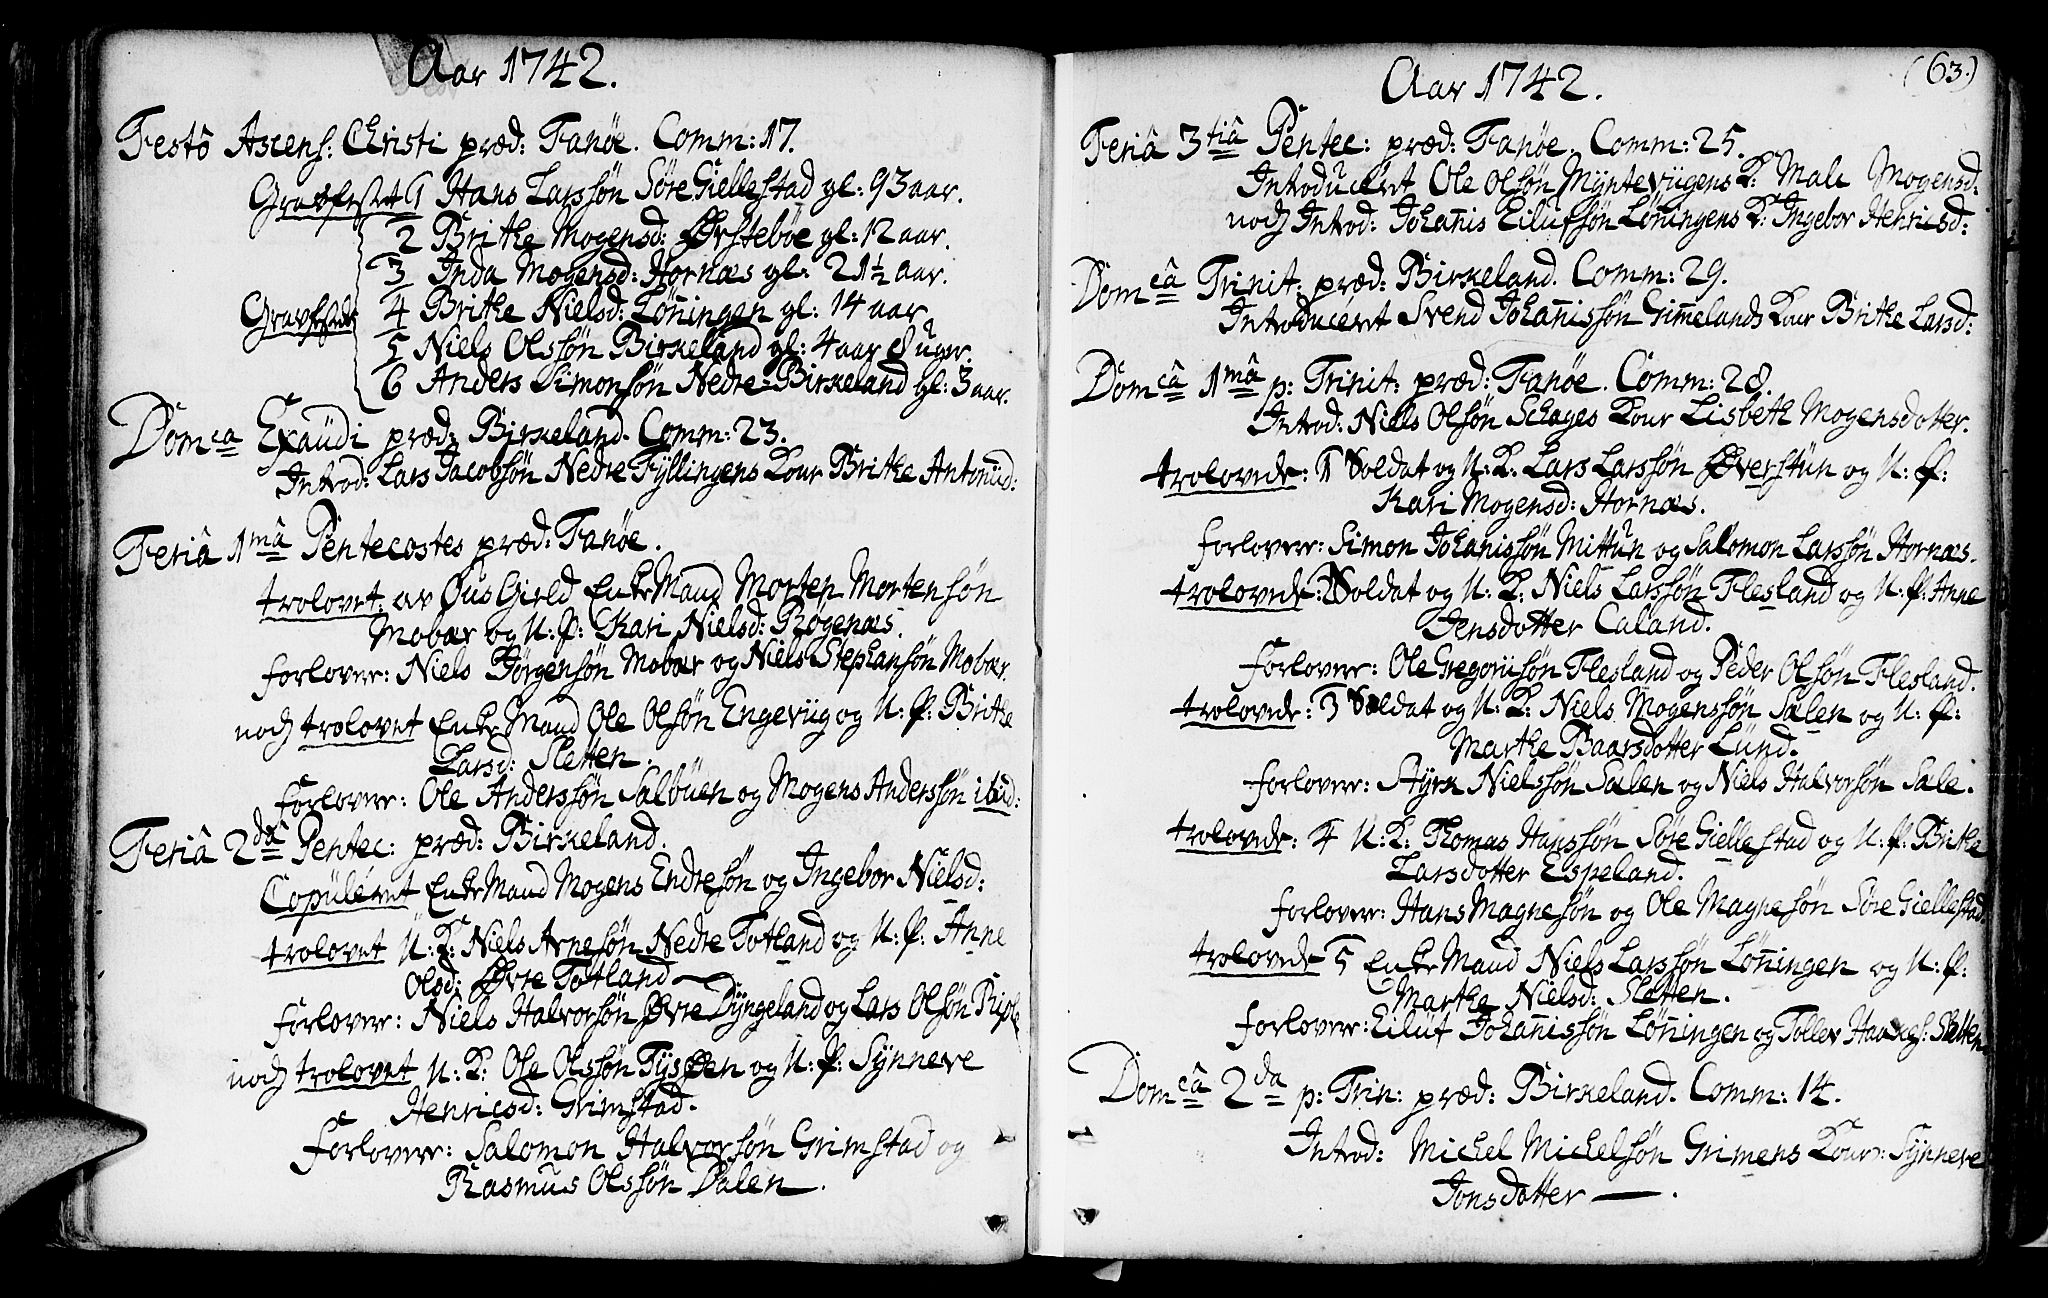 Aar 1742.
Festô Ascens: Christi præd: Fanøe. Comm: 17.
Gravfestet 1 Hans Larssøn Søre Giellestad gl: 93 aar.
2 Brithe Mogensd: Ørstebøe gl: 12 aar.
3 Inda Mogensd: Hornæs gl: 21½ aar.
Gravfestede 4 Brithe Nielsd: Løningen gl: 14 aar
5 Niels Olssøn Birkeland gl: 4 aar 8 uger.
6 Anders Simonsøn Nedre-Birkeland gl: 3 aar.
Domca Exaudi præd: Birkeland. Comm: 23.
Introd: Lars Jacobsøn Nedre Fyllingens Kour Brithe Antonid:
Feriâ 1mâ Pentecostes præd: Fanøe.
trolovet: av Ous Gield Enke Mand Morten Mortensøn
Mobær og U: P: Kari Nielsd: Røgenæs.
forlover: Niels Jørgensøn Mobær og Niels Stephansøn Mobær.
noch trolovet Enke Mand Ole Olsøn Engeviig og U: P: Brithe
Larsd: Sletten.
Forlover: Ole Anderssøn Salbuen og Mogens Anderssøn ibid:
Feriâ 2dâ Pentec: præd: Birkeland.
Copuleret Enke Mand Mogens Endresøn og Ingebor Nielsd:
trolovet U: K: Niels Arnesøn Nedre Totland og U: P: Anne
Olsd: Øvre Totland
Forlover: Niels Halvorsøn Øvre Dyngeland og Lars Olsøn Riple
noch trolovet U: K: Ole Olssøn Tyssen og U: P: Synneve
Henricsd: Grimstad.
Forlover: Salomon Halvorsøn Grimstad og
Rasmus Olssøn Dalen.
(63.)
Aar 1742.
Feriâ 3tiâ Pentec: præd: Fanøe. Comm: 25.
Introduceret Ole Olsøn Myntevigens K: Male Mogensd:
noch Introd: Johañis Eilufsøn Løningens K: Ingebor Henricsd:
Domcâ Trinit: præd: Birkeland. Comm: 29.
Introduceret Svend Johañissøn Grim̃elands Kour Brithe Larsd:
Domcâ 1mâ p: Trinit: præd: Fanøe. Comm: 28.
Introd: Niels Olsøn Schages Kour Lisbeth Mogensdotter.
trolovede: 1 Soldat og U: K: Lars Larssøn Øverstun og U: P:
Kari Mogensd: Hornæs.
forlover: Simon Johañissøn Mittun og Salomon Larssøn Hornæs.
trolovede: 2 Soldat og U: K: Niels Larssøn Flesland og U: P: Anne
Jensdotter Caland.
Forlover: Ole Gregoriisøn Flesland og Peder Olsøn Flesland.
trolovede: 3 Soldat og U: K: Niels Mogenssøn Sælen og U: P:
Marthe Baarsdotter Lund.
forlover: Styrk Nielssøn Sælen og Niels Halvorsøn Sæle.
trolovede: 4 U: K: Thomas Hanssøn Søre Giellestad og U: P: Brithe
Larsdotter Espeland.
forlover: Hans Magnesøn og Ole Magnesøn Søre Giellestad
trolovede 5 Enke Mand Niels Larssøn Løñingen og U: P:
Marthe Nielsd: Sletten.
forlover: Eiluf Johañissøn Løñingen og Tollev Haakes: Sletten.
Domcâ 2da p: Trin: præd: Birkeland. Comm: 14.
Introd: Michel Michelsøn Grimens Kour: Synneve
Jonsdotter —.